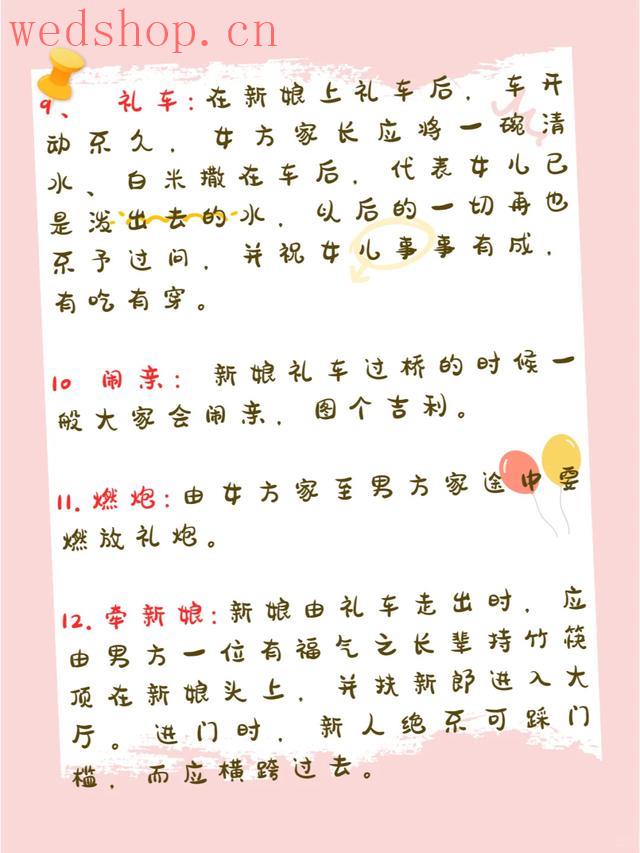 wedshop.cn
9、 礼车:在新娘上礼车后，车开
动不久，女方家长应将一碗清
水、白米撒在车后，代表女儿已
是泼出去的水，以后的一切再也
不予过问，并祝女儿事事有成，
有吃有穿。
10 闹亲：新娘礼车过桥的时候一
般大家会闹亲，图个吉利。
11.燃炮:由女方家至男方家途中要
燃放礼炮。
12.牵新娘:新娘由礼车走出时，应
由男方一位有福气之长辈持竹筷
顶在新娘头上，并扶新郎进入大
厅。进门时，新人绝不可踩门
槛，而应横跨过去。